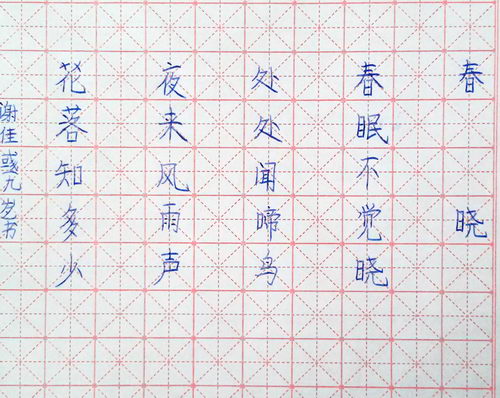 春晓
春眠不觉晓
处处闻啼鸟
夜来风雨声
花落知多少
谢佳彧九岁书